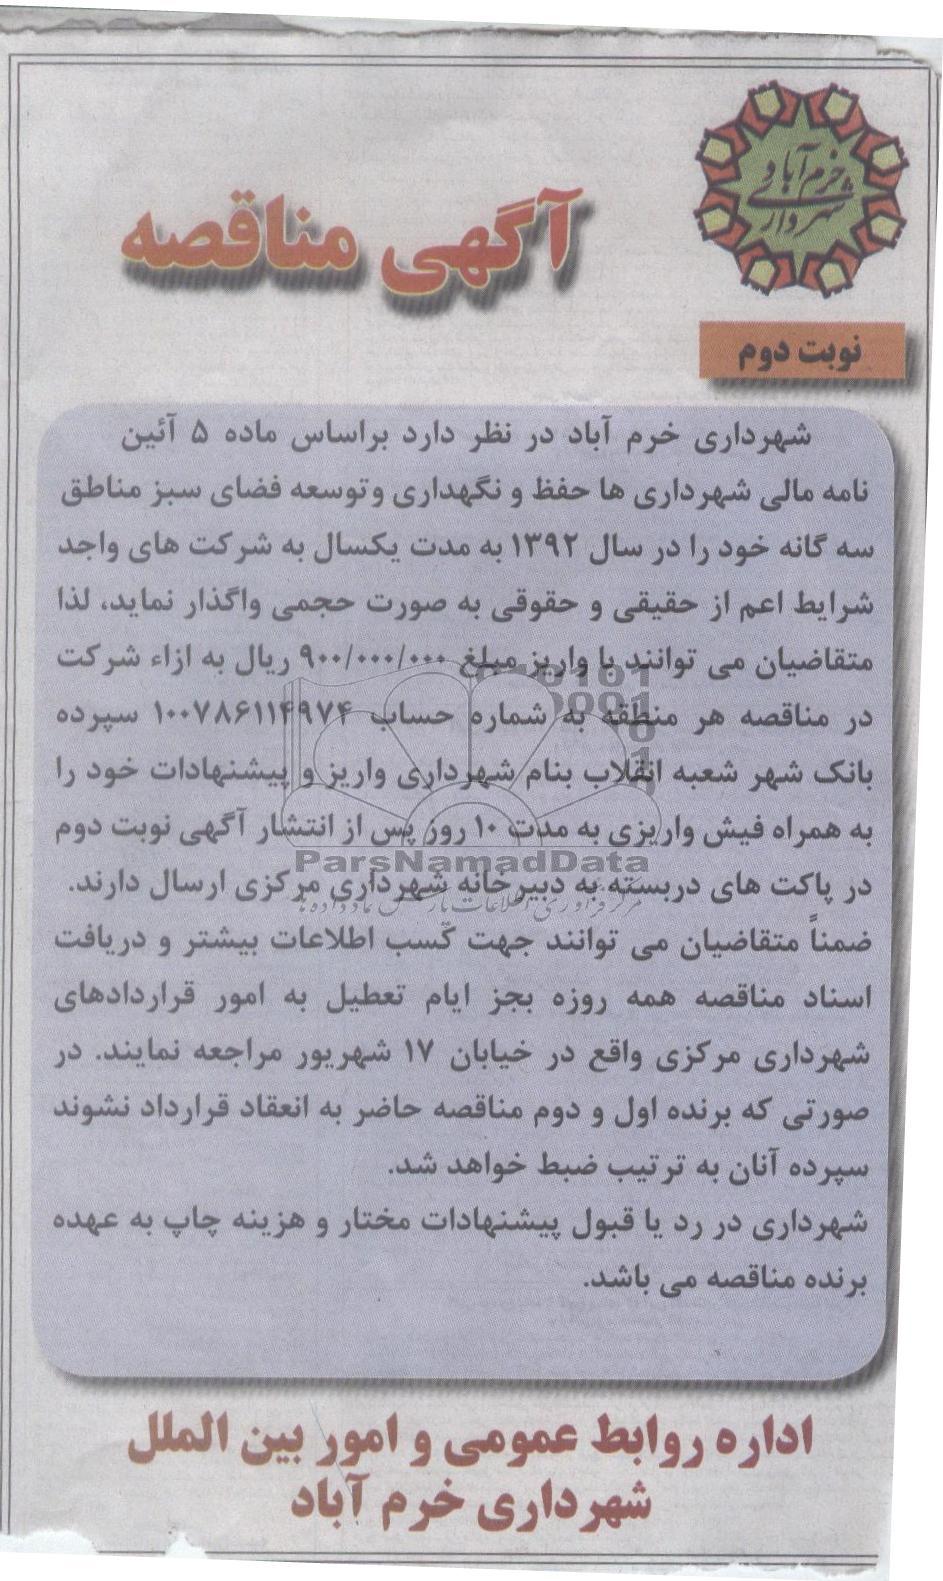 شهرداری
خرم آباد
آگهی مناقصه
نوبت دوم
شهرداری خرم آباد در نظر دارد براساس ماده ۵ آئین
نامه مالی شهرداری ها حفظ و نگهداری وتوسعه فضای سبز مناطق
سه گانه خود را در سال ۱۳۹۲ به مدت یکسال به شرکت های واجد
شرایط اعم از حقیقی و حقوقی به صورت حجمی واگذار نماید، لذا
متقاضیان می توانند با واریز مبلغ ۹۰۰/۰۰۰/۰۰۰ ریال به ازاء شرکت
در مناقصه هر منطقه به شماره حساب ۱۰۰۷۸۶۱۱۴۹۷۴ سپرده
بانک شهر شعبه انقلاب بنام شهرداری واریز و پیشنهادات خود را
به همراه فیش واریزی به مدت ۱۰ روز پس از انتشار آگهی نوبت دوم
ParsNamadData
در پاکت های دربسته به دبیرخانه شهرداری مرکزی ارسال دارند.
مرکز فرآوری اطلاعات پارس نماد داده ها
ضمناً متقاضیان می توانند جهت کسب اطلاعات بیشتر و دریافت
اسناد مناقصه همه روزه بجز ایام تعطیل به امور قراردادهای
شهرداری مرکزی واقع در خیابان ۱۷ شهریور مراجعه نمایند. در
صورتی که برنده اول و دوم مناقصه حاضر به انعقاد قرارداد نشوند
سپرده آنان به ترتیب ضبط خواهد شد.
شهرداری در رد یا قبول پیشنهادات مختار و هزینه چاپ به عهده
برنده مناقصه می باشد.
اداره روابط عمومی و امور بین الملل
شهرداری خرم آباد